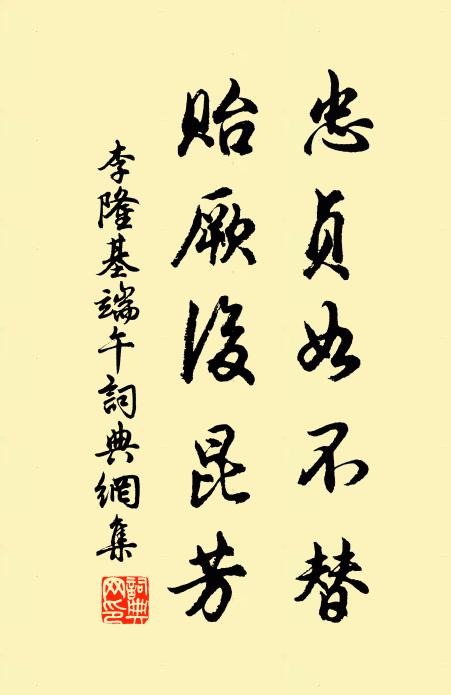 忠貞如不替
貽厥後昆芳
李隆基端午詞典網集
詞典網印